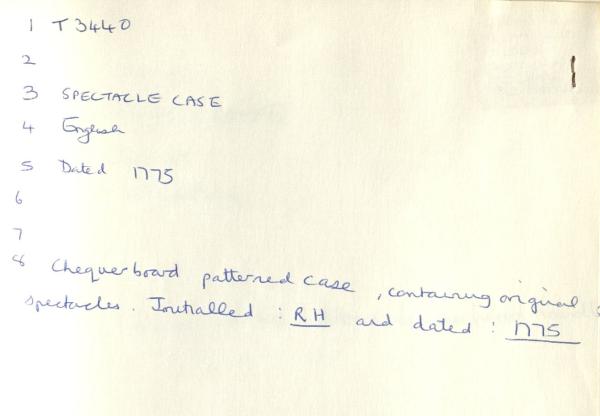 1 T 3440
2
3 SPECTACLE CASE
4 English
5 Dated 1775
6
7
8 Chequerboard patterned case, containing original
spectacles. Initialled : RH and dated : 1775